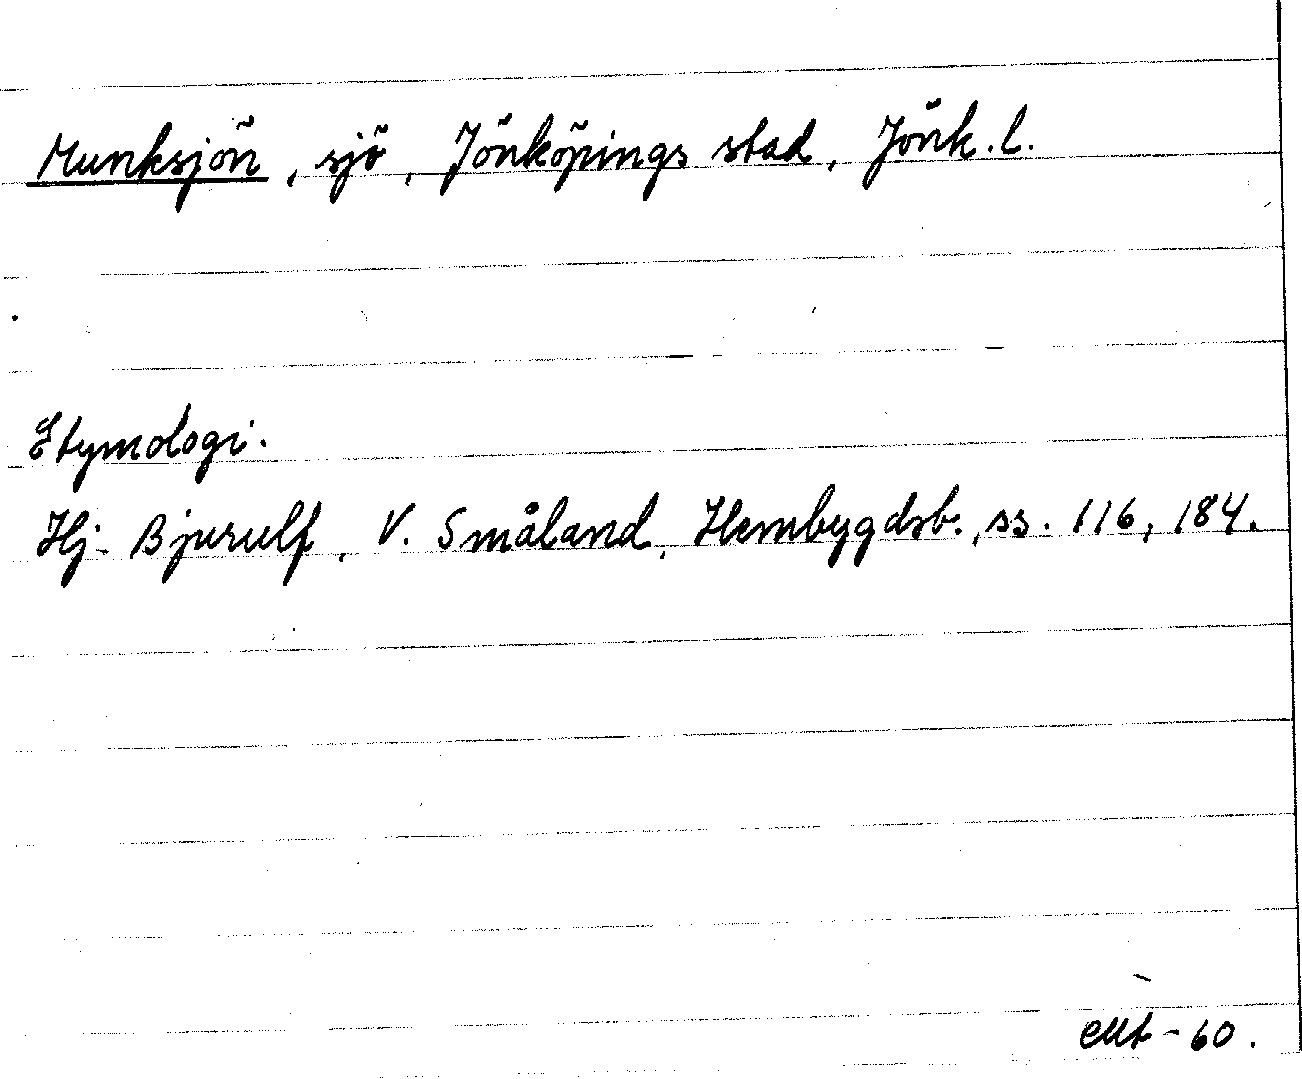 Munksjön, sjö, Jönköpings stad, Jönk. l.
Etymologi.
Hj. Bjurulf, V. Småland, Hembygdsb., ss. 116, 184.
-60.